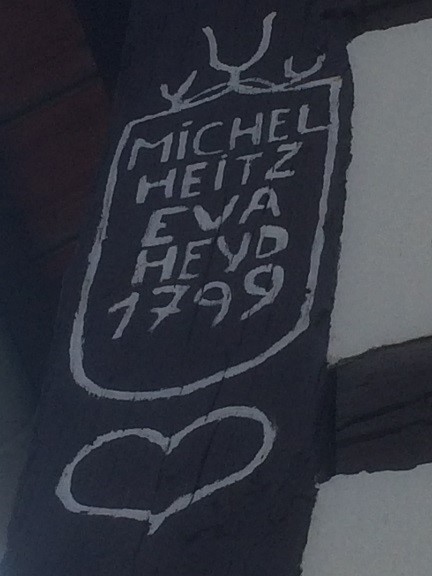 MiCHEL
HEiTZ
EVA
HEYD
1799